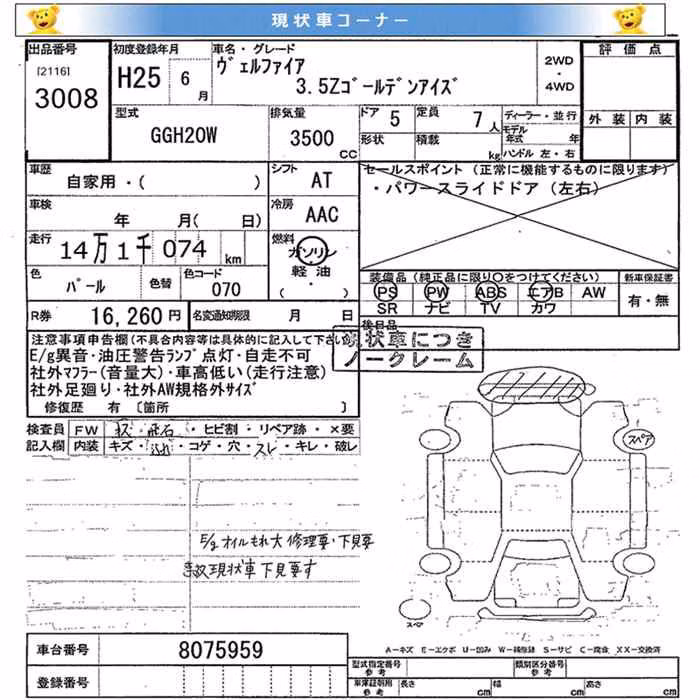 現状車コーナー
出品番号 初度登録年月 車名・グレード 2WD・4WD 評価点
[2116] 3008 H25 6月 ヴェルファイア
3.5Zゴールデンアイズ
型式 GGH20W 排気量 3500CC ドア 5 定員 7人 ディーラー・並行 外装 内装
形状 積載 kg モデル年式 年
ハンドル 左・右
車歴 自家用・( ) シフト AT セールスポイント (正常に機能するものに限ります)
・パワースライドドア (左右)
車検 年 月( 日) 冷房 AAC
走行 14万1千074km 燃料 ガソリン
軽油
・( )
色 パール 色替 色コード 070 装備品 (純正品に限り〇をつけてください) 新車保証書
PS PW ABS エアB AW 有・無
SR ナビ TV カワ
R券 16,260円 名変通知期限 月 日 後日品
注意事項申告欄(不具合内容等は具体的に記入して下さい)
現状車につき
ノークレーム
E/g異音・油圧警告ランプ点灯・自走不可
社外マフラー(音量大)・車高低い(走行注意)
社外足廻り・社外AW規格外サイズ
修復歴 有 〔箇所 〕
検査員記入欄 FW キズ・飛石・ヒビ割・リペア跡・×要
内装 キズ・コゲ・穴・スレ・キレ・破レ
スペア
E/gオイルもれ大 修理要・下見要
現状車下見要す
スペア
A-キズ E-エクボ U-凹ミ W-補修跡 S-サビ C-腐食 XX-交換済
車台番号 8075959
登録番号
型式指定番号 参考 類別区分番号 参考
車庫証明用 参考 長さ cm 幅 cm 高さ cm